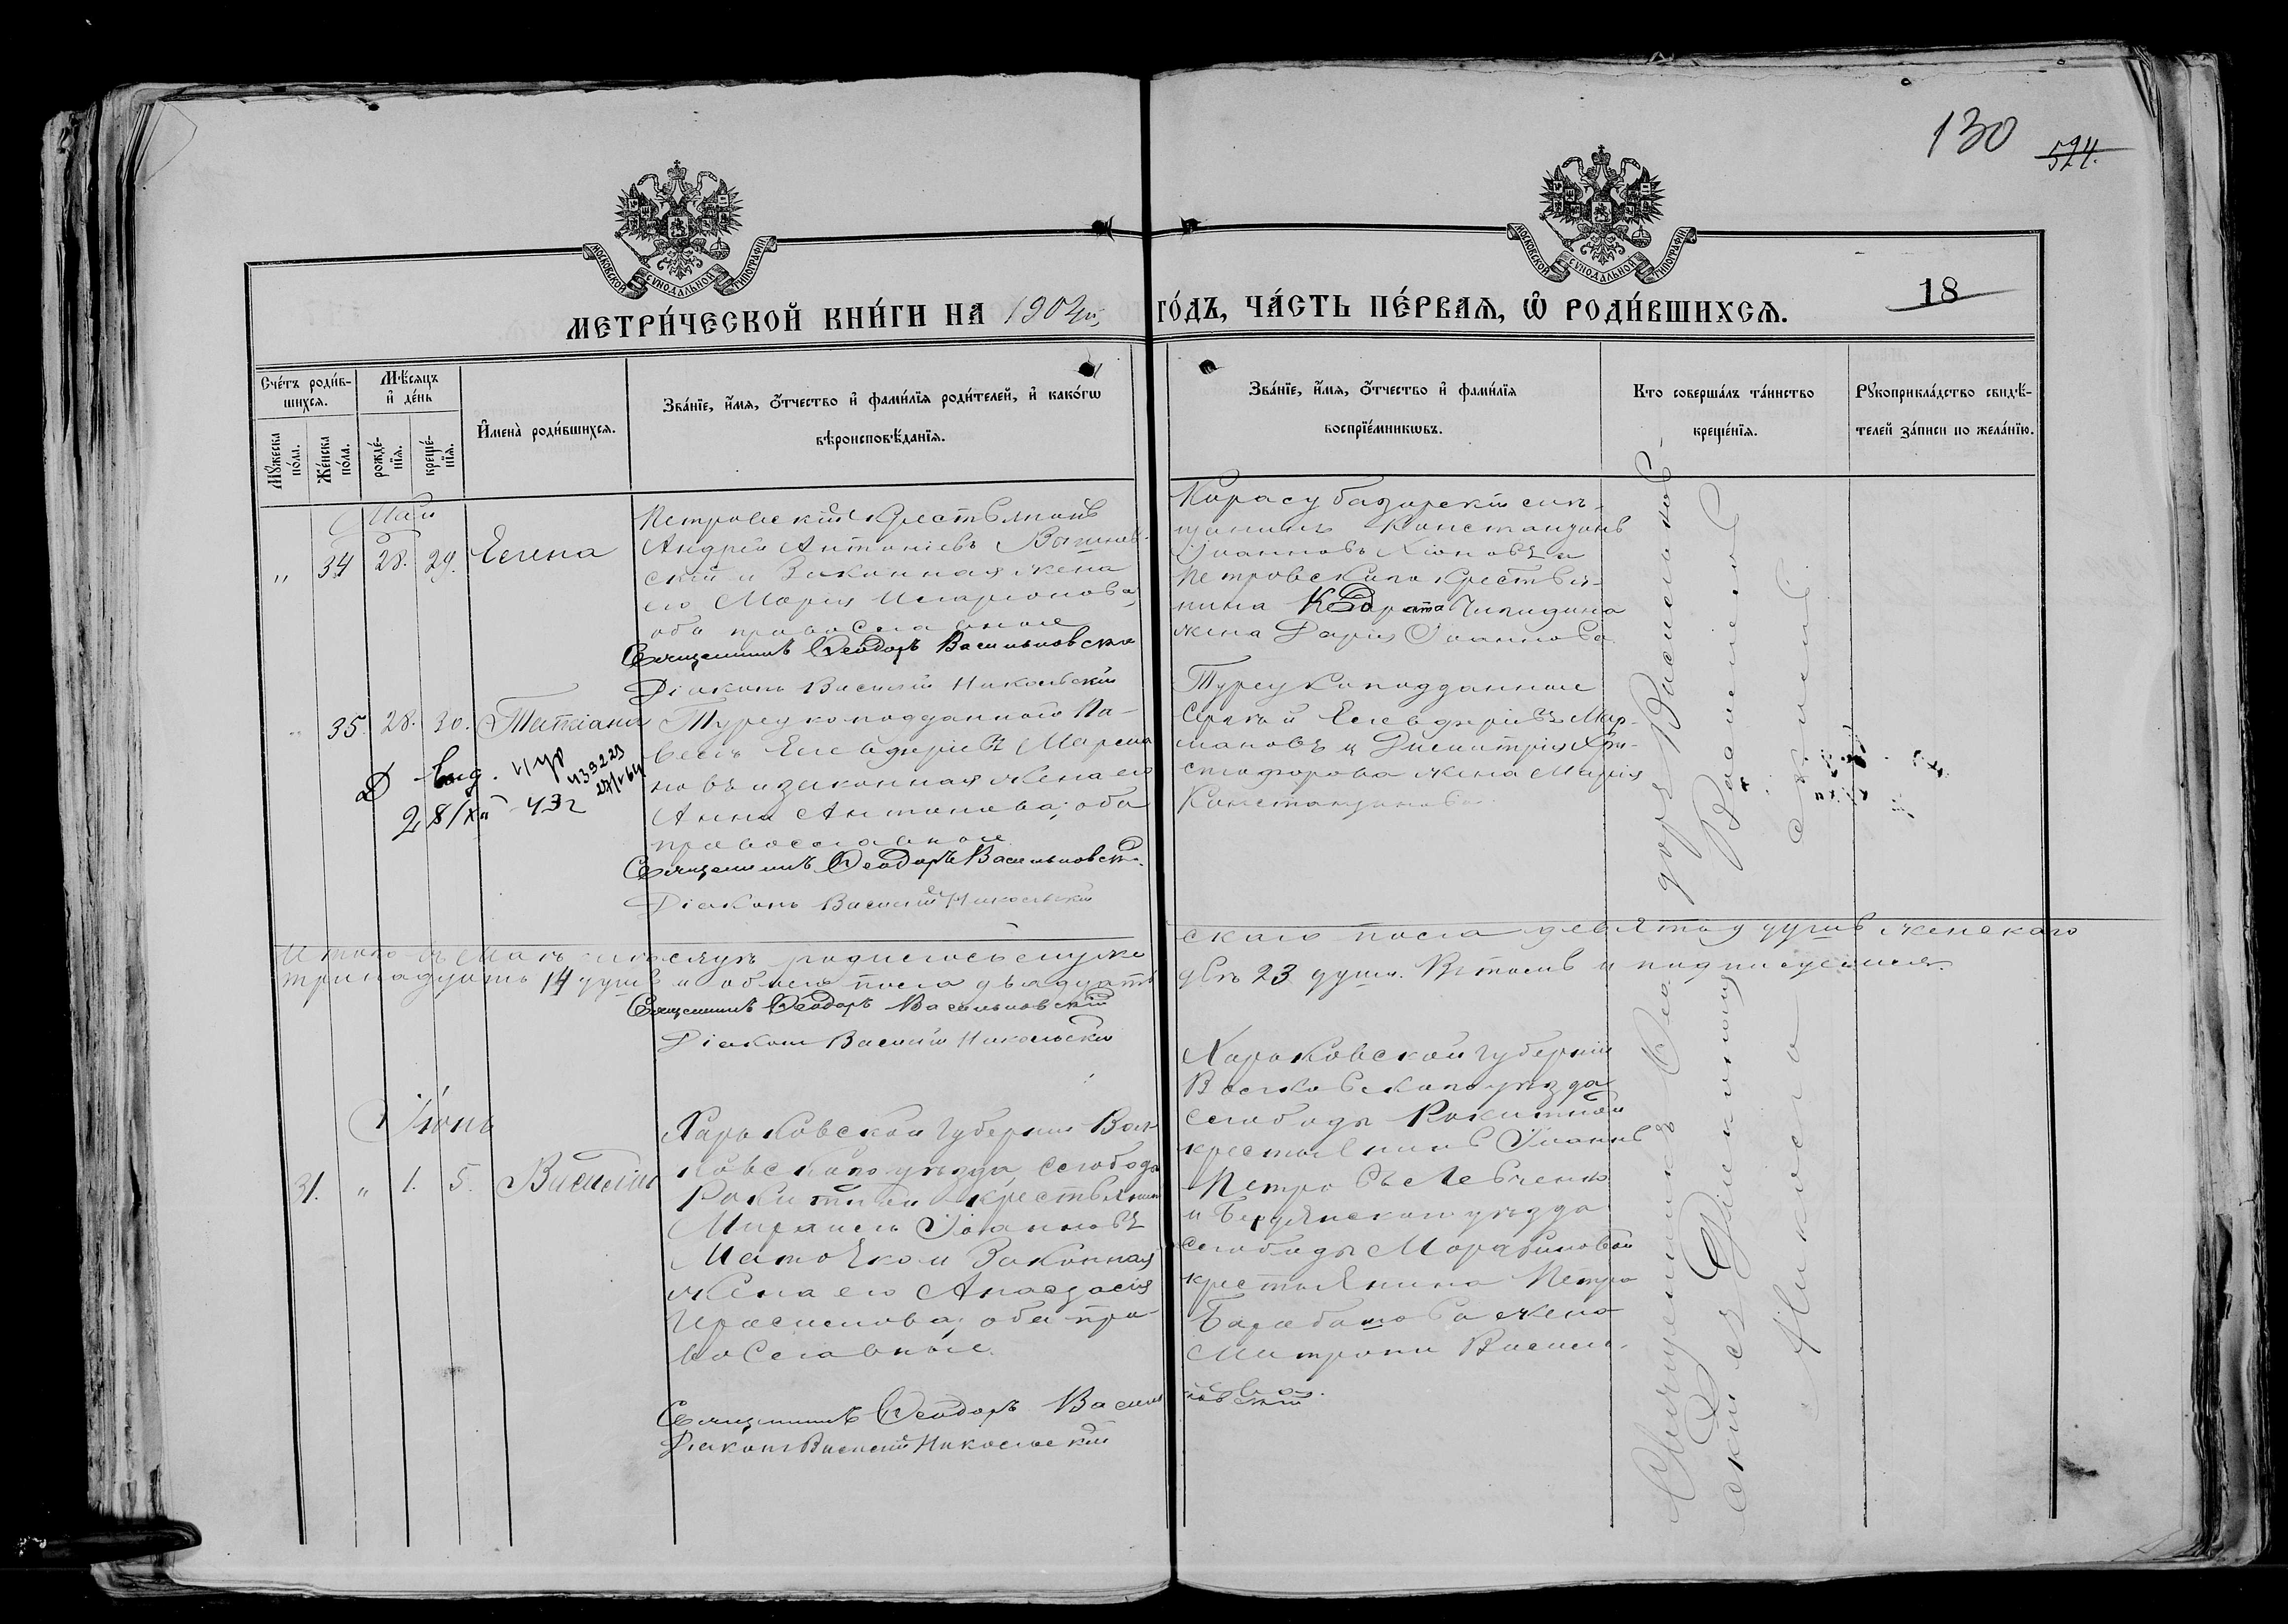 130
524.
МОСКОВСКОЙ СѴНОДАЛЬНОЙ ТИПОГРАФІИ
МОСКОВСКОЙ СѴНОДАЛЬНОЙ ТИПОГРАФІИ
18
МЕТРИ́ЧЕСКОЙ КНИ́ГИ НА 1902й ГО́ДЪ, ЧА́СТЬ ПЕ́РВАѦ, Ѡ҆ РОДИ́ВШИХСѦ.
Сче́тъ роди́в-
шихсѧ.
Мꙋ́жеска по́ла.
Же́нска по́ла.
Мѣ́сѧцъ и҆ де́нь
рожде́-
нїѧ.
креще́-
нїѧ.
И҆мена̀ роди́вшихсѧ.
Зва́нїе, и҆́мѧ, ѻ҆́тчество и҆ фами́лїѧ роди́телей, и҆ како́гѡ
вѣроисповѣ́данїѧ.
Зва́нїе, и҆́мѧ, ѻ҆́тчество и҆ фами́лїѧ
воспрїе́мникѡвъ.
Кто соверша́лъ та́инство
креще́нїѧ.
Рꙋкоприкла́дство свидѣ́-
телей за́писи по жела́нїю.
Май
" 34 28. 29. Елена
Петровскій крестьянинъ
Андрей Антоніевъ
скій и Законная жена
его Марія Иларіонова,
оба православные
Священникъ Ѳеодоръ Васильковскій
Діаконъ Василій Никольскій
Карасубазарскій мѣ-
щанинъ Константинъ
Іоанновъ и
Петровскаго крестья-
нина
жена Дарія Іоаннова
" 35. 28. 30. Татіана
Турецкоподданный Па-
велъ Елевферіевъ
новъ и законная жена его
Анна Антонова; оба
православные
Священникъ Ѳеодоръ Васильковскій
Діаконъ Василій Никольскій
Турецкоподданные
Елевферіевъ Мар-
мановъ и Димитрія Хри-
стофорова жена Марія
Константинова.
28/XII 43г
Итого въ Маѣ мѣсяцѣ родилось муже
скаго пола девять 9 душъ женскаго
тринадцать 14 душъ и обоего пола двадцать
двѣ 23 души. Въ томъ и подписуемся.
Священникъ Ѳеодоръ Васильковскій
Діаконъ Василій Никольскій
Іюнь
31. " 1. 5. Василій
Харьковской губерніи Вал-
ковскаго уѣзда, слободы
Рокитной крестьянинъ
Іоанновъ
и Законная
жена его Анастасія
Герасимова; оба пра-
вославные.
Священникъ Ѳеодоръ Васильковскій
Діаконъ Василій Никольскій
Харьковской губерніи
Валковскаго уѣзда
слободы Рокитной
крестьянинъ Іоаннъ
Петровъ Левченко
и Бердянскаго уѣзда
слободы
крестьянина Петра
Барабаша жена
Матрона Василь-
ева.
Священникъ Ѳео-
доръ Васильковс-
кій съ Діакономъ
Василіемъ
Никольскимъ